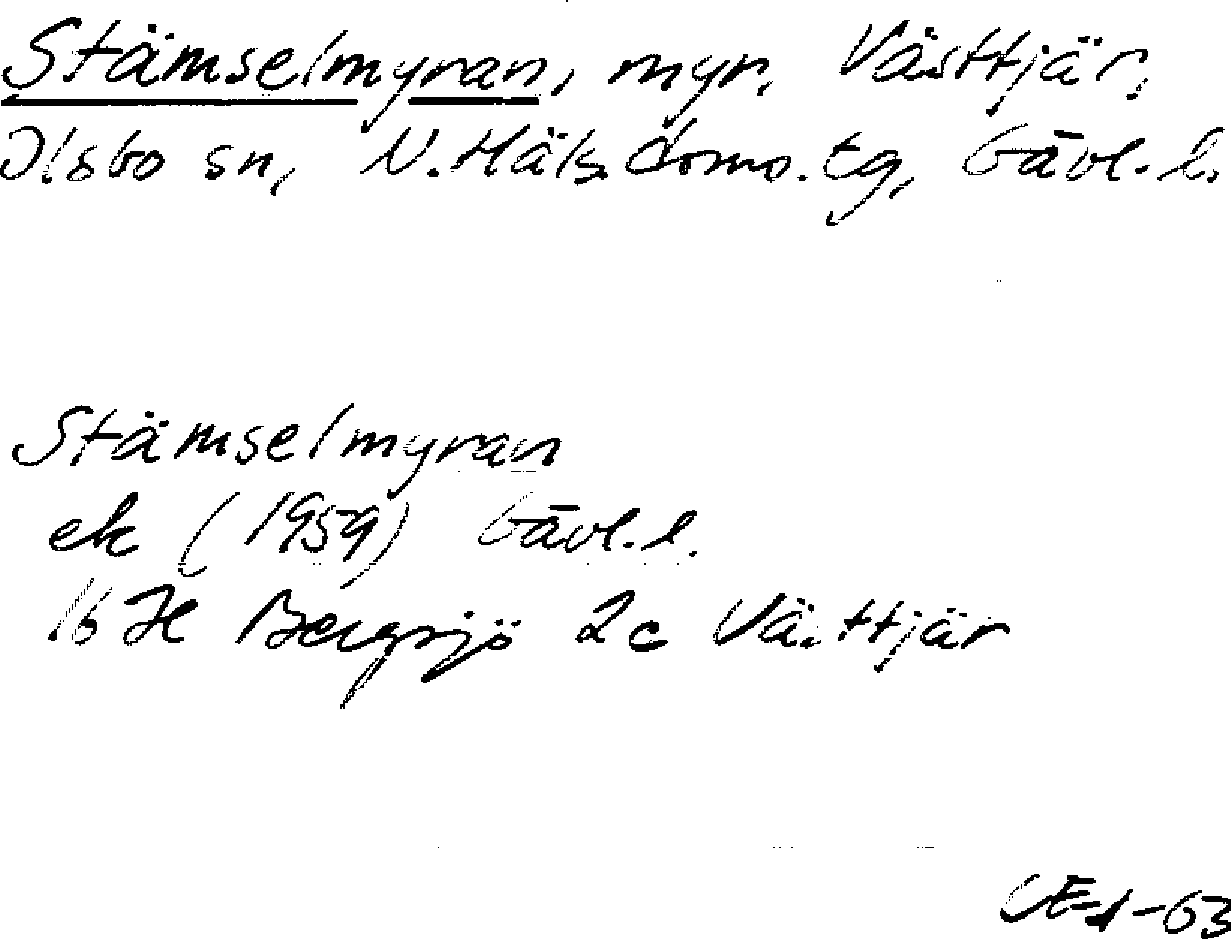 Stämselmyran, myr, Västtjär,
Ilsbo sn, N. Häls. doms. tg, Gävl. l.
Stämselmyran
ek (1959) Gävl. l.
16 H Bergsjö 2c Västtjär